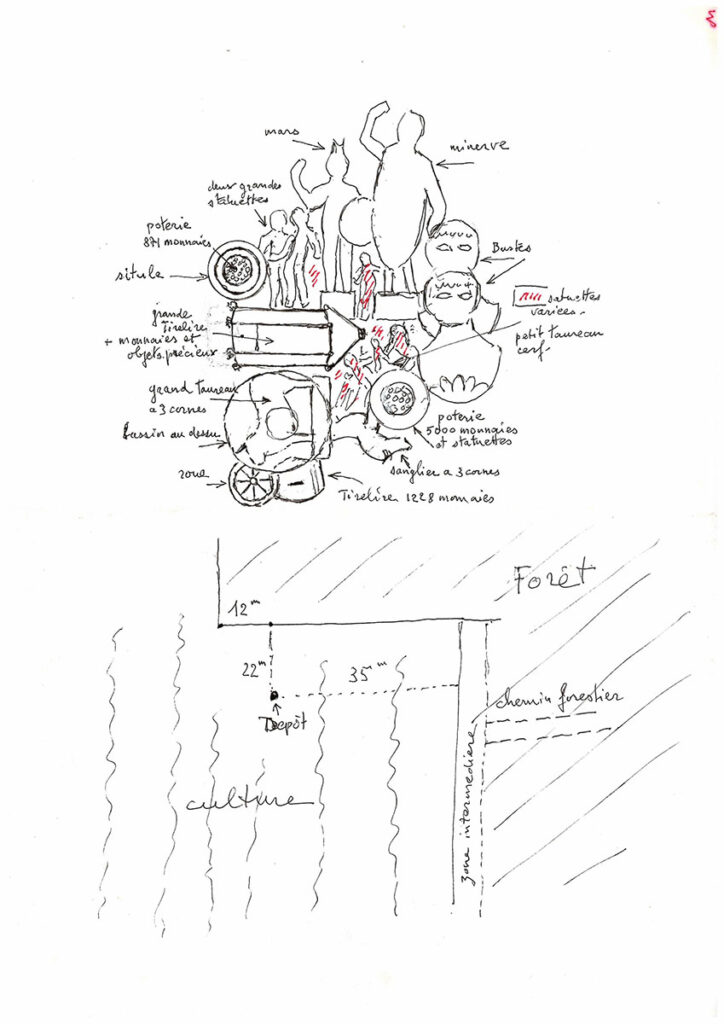 mars
minerve
deux grandes
statuettes
poterie
871 monnaies
situle
Bustes
satuettes
variées
petit taureau
cerf
grande
Tirelire
+ monnaies et
objets précieux
grand taureau
a 3 cornes
Bassin au dessu
poterie
5000 monnaies
et statuettes
sanglier a 3 cornes
roue
Tirelire 1228 monnaies
Forêt
12 m
22 m
35 m
chemin forestier
Depôt
culture
zone intermediere